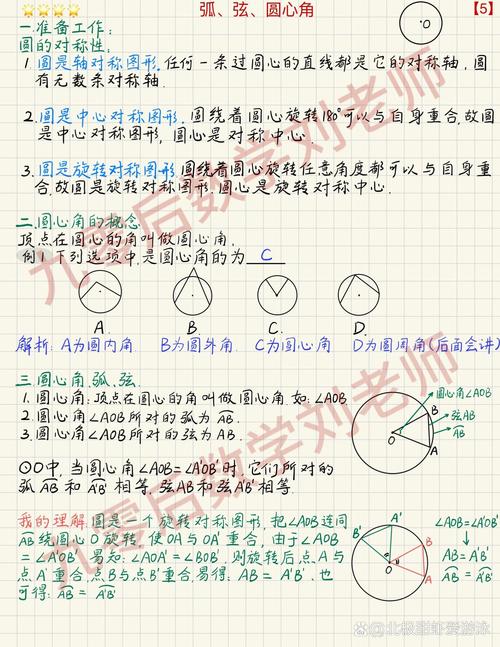 弧、弦、圆心角
【5】
一.准备工作:
圆的对称性:
1.圆是轴对称图形.任何一条过圆心的直线都是它的对称轴,圆
有无数条对称轴.
2.圆是中心对称图形,圆绕着圆心旋转180°可以与自身重合,故圆
是中心对称图形,圆心是对称中心.
3.圆是旋转对称图形,圆绕着圆心旋转任意角度都可以与自身重
合,故圆是旋转对称图形.圆心是旋转对称中心.
二.圆心角的概念
顶点在圆心的角叫做圆心角,
例1.下列选项中,是圆心角的为 C
A. B. C. D.
解析:A为圆内角 B为圆外角 C为圆心角 D为圆周角(后面会讲)
三.圆心角,弧,弦.
1.圆心角:顶点在圆心的角叫做圆心角,如:∠AOB
2.圆心角∠AOB所对的弧为A͡B.
3.圆心角∠AOB所对的弦为AB.
圆心角∠AOB
弦AB
A͡B
O
B
A
⊙O中,当圆心角∠AOB=∠A'OB'时,它们所对的
弧A͡B和A͡'B'相等,弦AB和弦A'B'相等.
我的理解:圆是一个旋转对称图形,把∠AOB连同
AB绕圆心O旋转,使OA与OA'重合,由于∠AOB
=∠A'OB'.易知:∠AOA'=∠BOB',则旋转后点A与
点A'重合,点B与点B'重合,易得:AB=A'B'.也
可得:A͡B=A͡'B'
B'
A'
B
A
O
∠AOB=∠A'OB'
↓
AB=A'B'
A͡B=A͡'B'
九零后数学刘老师
九零后数学刘老师
百家号/北极甜虾爱游泳